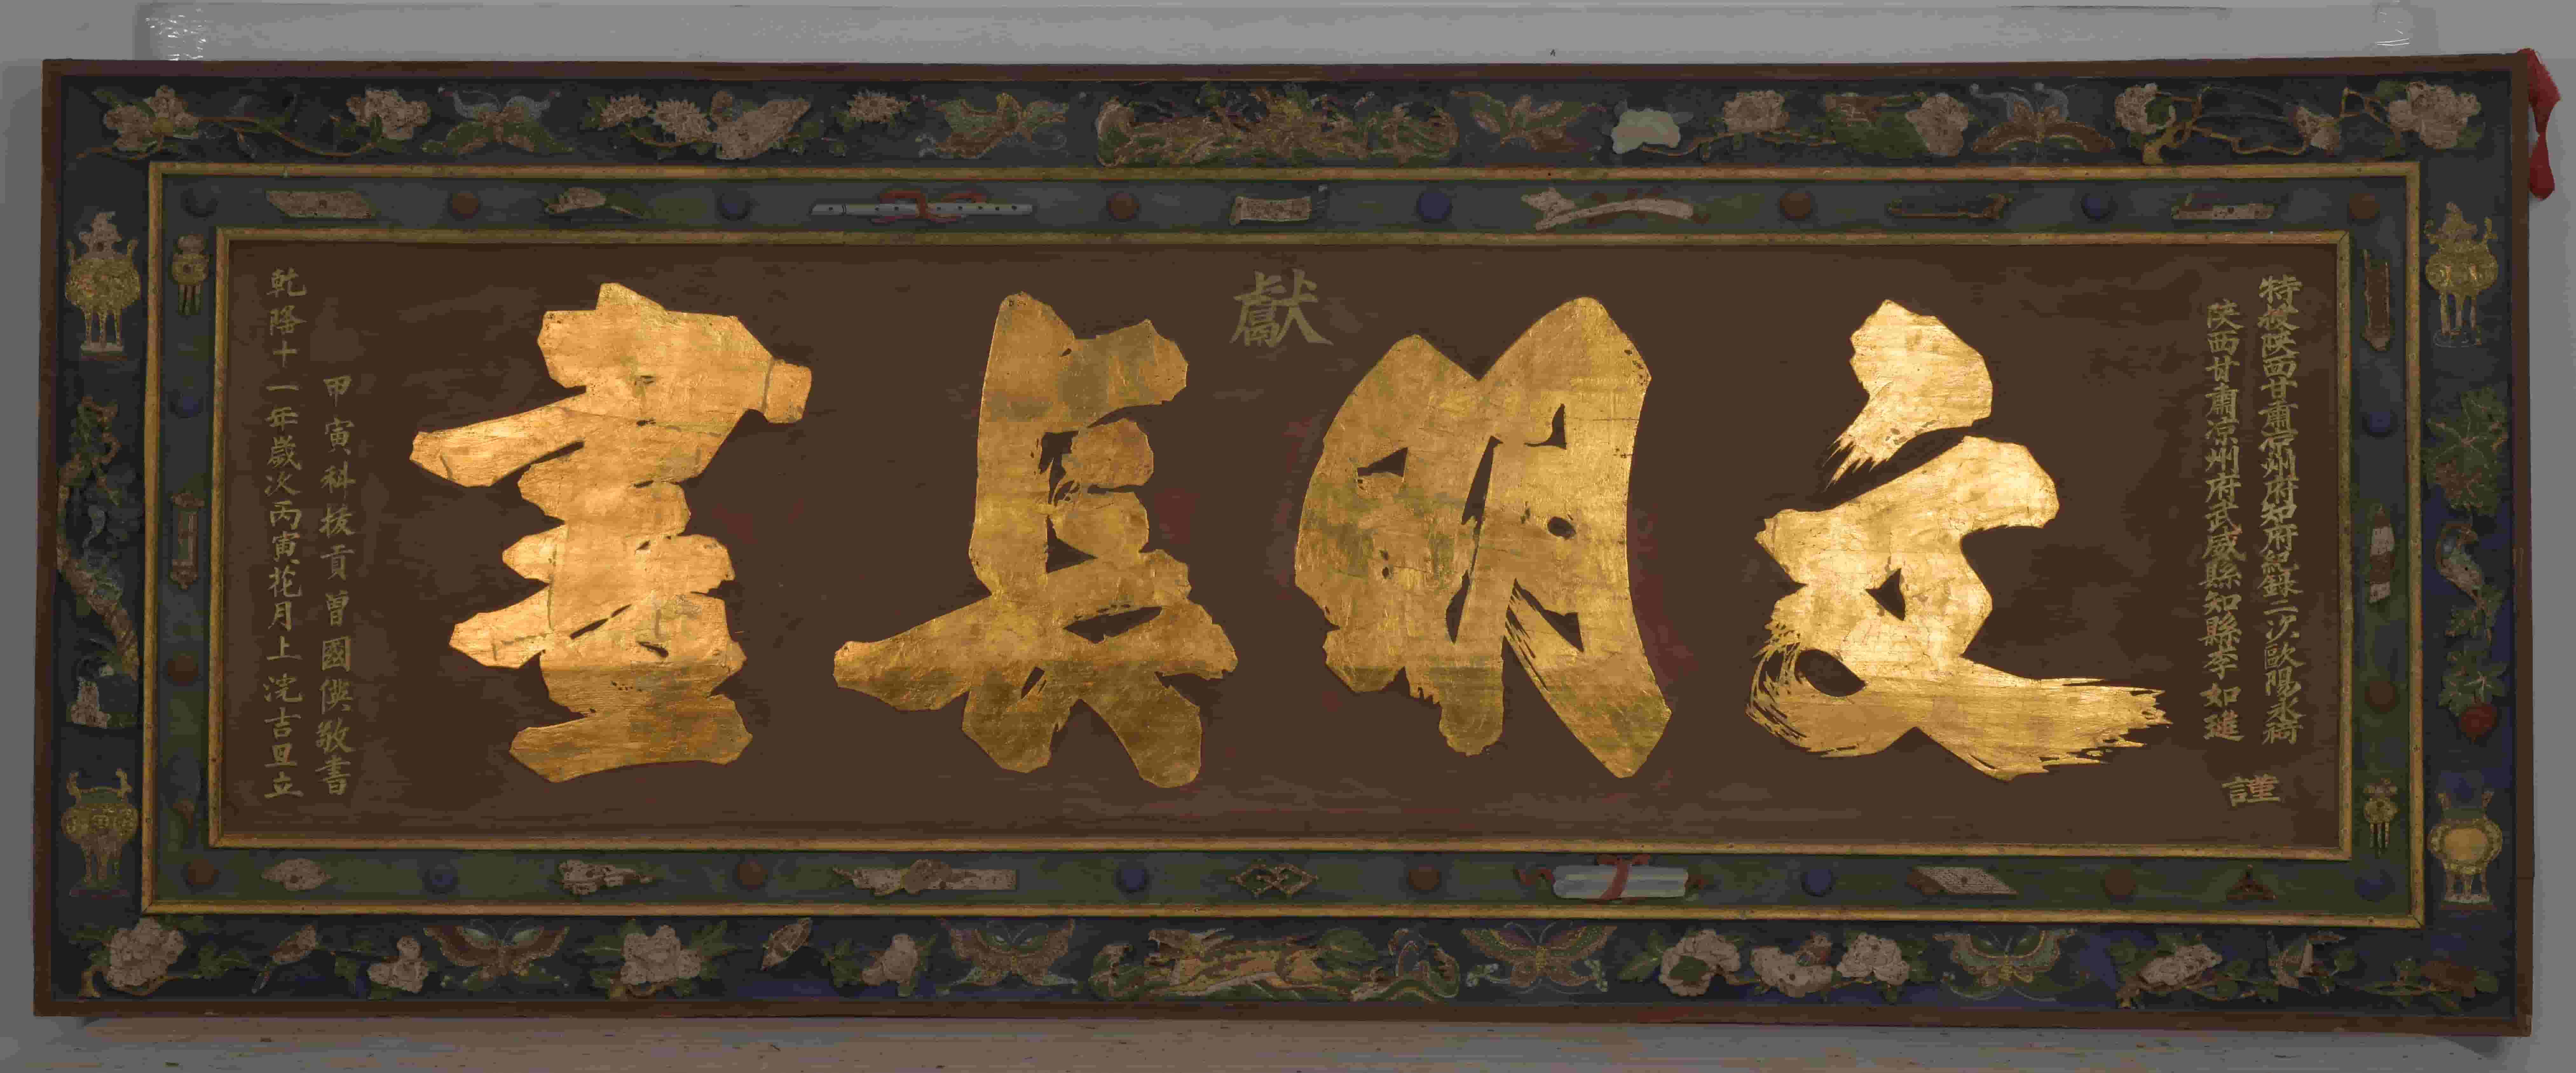 特授陝西甘肅凉州府知府紀錄二次歐陽永裿
陝西甘肅凉州府武威縣知縣李如璡
謹
獻
文明長晝
甲寅科拔貢曾國傑敬書
乾隆十一年歲次丙寅花月上浣吉旦立